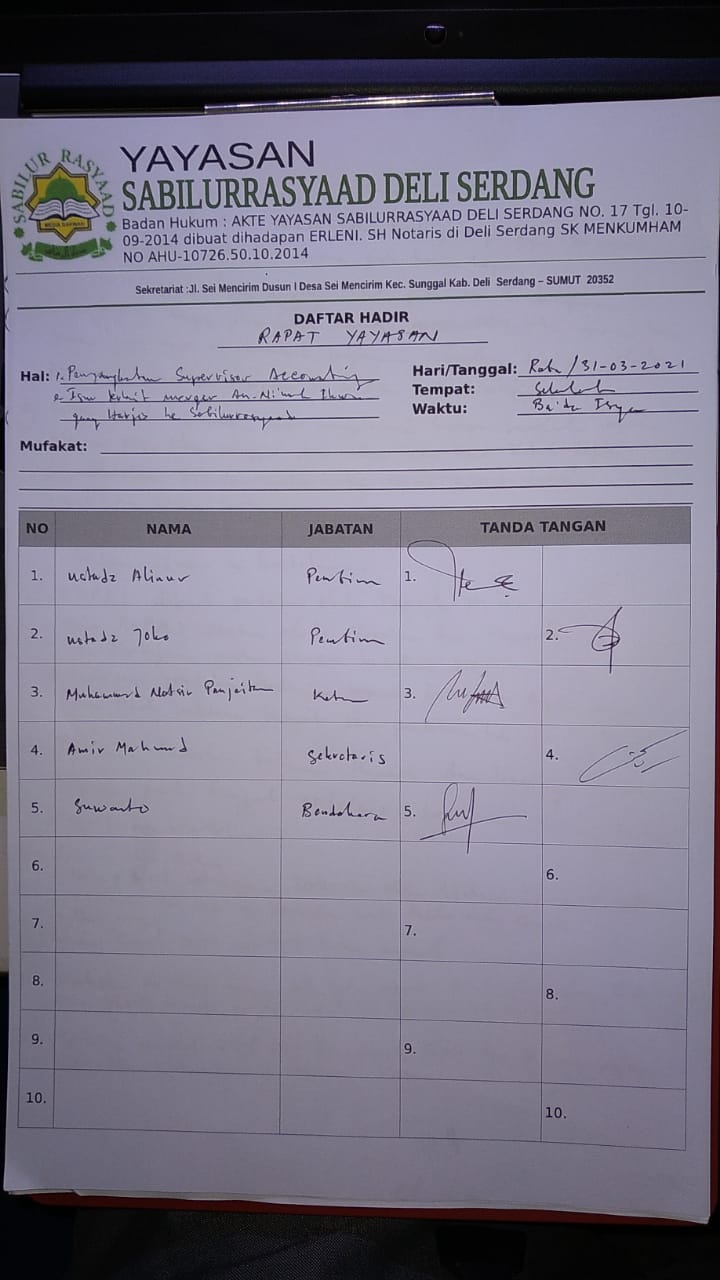 SABILUR RASYAAD
MEDIA DAKWAH
YAYASAN
SABILURRASYAAD DELI SERDANG
Badan Hukum : AKTE YAYASAN SABILURRASYAAD DELI SERDANG NO. 17 Tgl. 10-
09-2014 dibuat dihadapan ERLENI. SH Notaris di Deli Serdang SK MENKUMHAM
NO AHU-10726.50.10.2014
Sekretariat :Jl. Sei Mencirim Dusun I Desa Sei Mencirim Kec. Sunggal Kab. Deli Serdang – SUMUT 20352
DAFTAR HADIR
RAPAT YAYASAN
Hal: 1. Pengangkatan Supervisor Accounting
merger An-Ni'mah
ke Sabilurrasyaad
Hari/Tanggal: Rabu /31-03-2021
Tempat: Sekolah
Waktu: Ba'da Isya
Mufakat:
NO NAMA JABATAN TANDA TANGAN
1. ustadz Alinur 1.
2. ustadz Joko 2.
3. Muhammad Natsir Panjaitan Ketua 3.
4. Amir Mahmud Sekretaris 4.
5. Suwarto Bendahara 5.
6. 6.
7. 7.
8. 8.
9. 9.
10. 10.